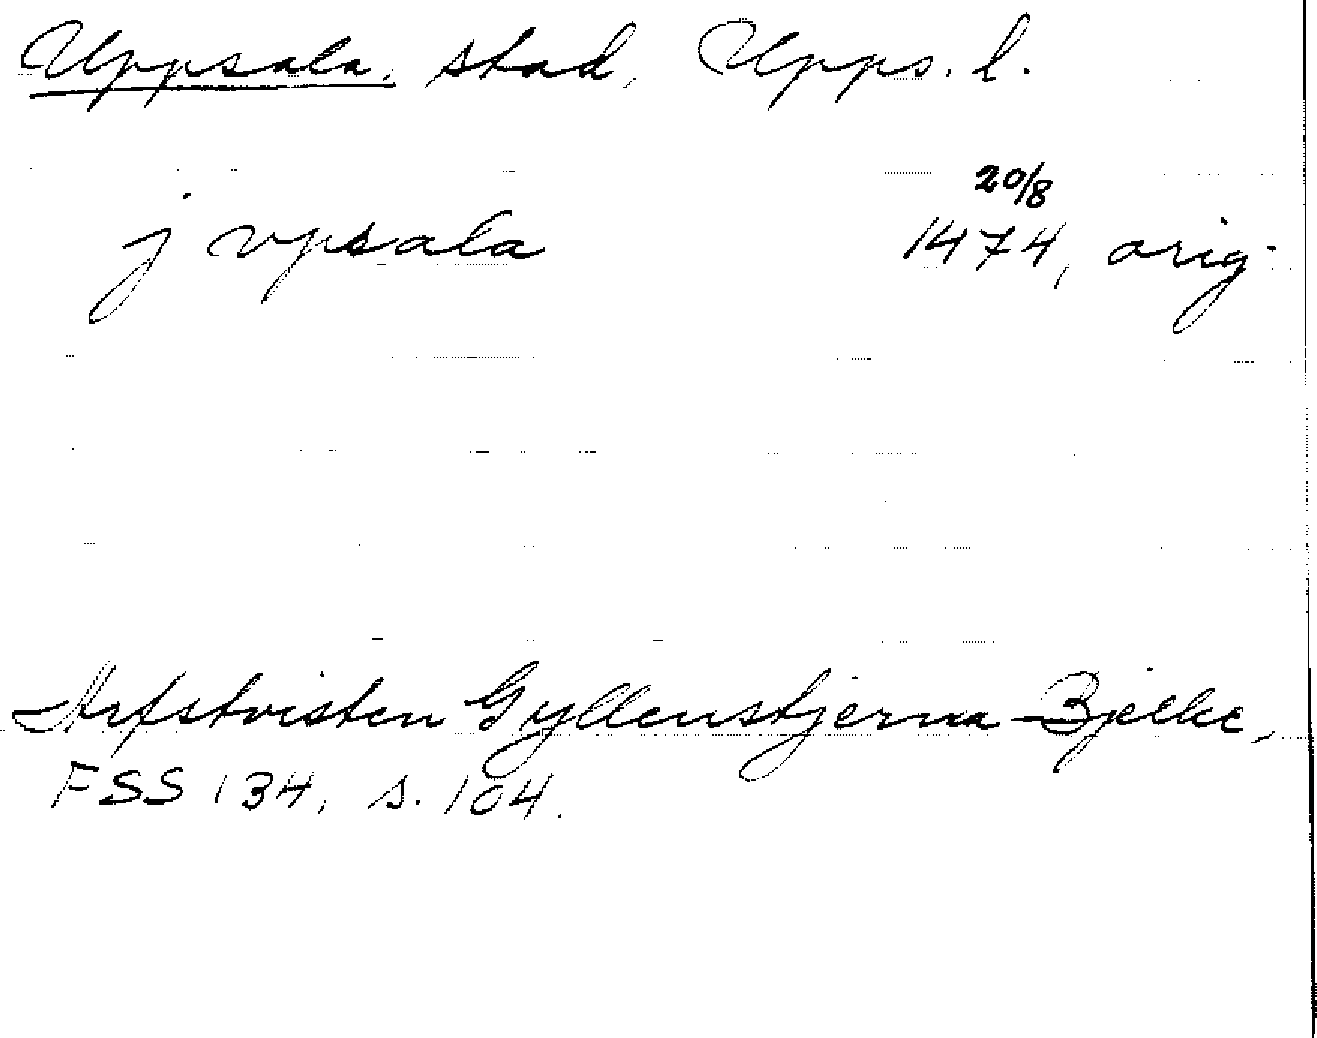 Uppsala, stad, Upps. l.
20/8
j vpsala 1474, orig.
Arfstvisten Gyllenstjerna-Bjelke,
FSS 134, s. 104.